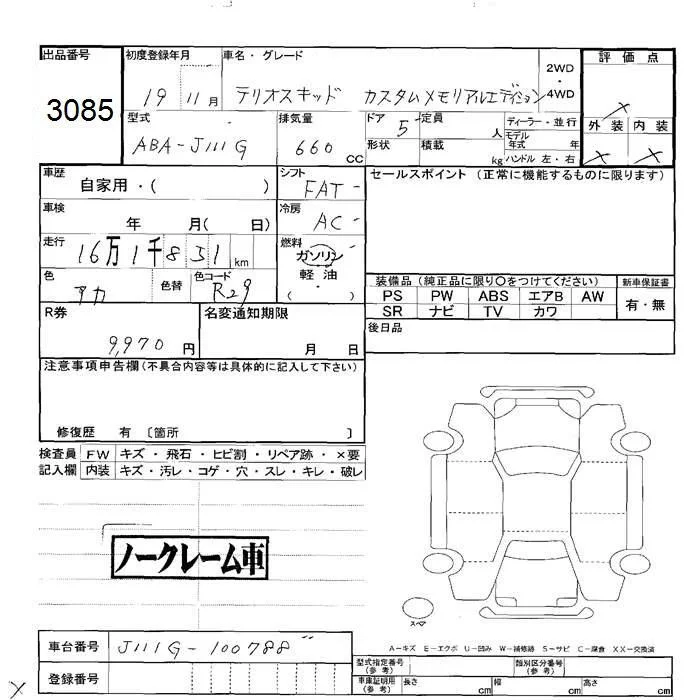 出品番号
3085
初度登録年月
19 11月
車名・グレード
テリオスキッド カスタムメモリアルエディション
2WD
・
4WD
評価点
×
外装 内装
× ×
型式
ABA-J111G
排気量
660 CC
ドア 5
形状
定員 人
積載 kg
ディーラー・並行
モデル年式 年
ハンドル 左・右
車歴
自家用・( )
シフト
FAT
セールスポイント (正常に機能するものに限ります)
車検
年 月( 日)
冷房
AC
走行
16万1千851km
燃料
ガソリン
軽油
・
( )
色
アカ
色替
色コード
R29
装備品 (純正品に限り○をつけてください)
新車保証書
PS PW ABS エアB AW
SR ナビ TV カワ
有・無
後日品
R券
9,970円
名変通知期限
月 日
注意事項申告欄(不具合内容等は具体的に記入して下さい)
修復歴 有 〔箇所 〕
検査員記入欄
FW キズ・飛石・ヒビ割・リペア跡・×要
内装 キズ・汚レ・コゲ・穴・スレ・キレ・破レ
ノークレーム車
スペア
A-キズ E-エクボ U-凹み W-補修跡 S-サビ C-腐食 XX-交換済
車台番号 J111G-100788
登録番号
型式指定番号(参考)
類別区分番号(参考)
車庫証明用(参考) 長さ cm 幅 cm 高さ cm
×